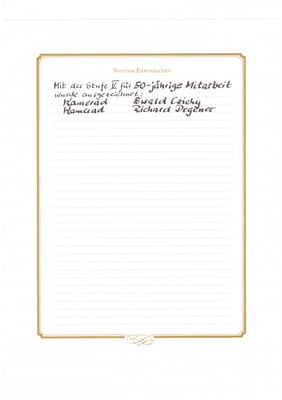 Sonstige Ehrenzeichen
Mit der Stufe V für 50-jährige Mitarbeit
wurde ausgezeichnet:
Kamerad Ewald Czichy
Kamerad Richard Degener